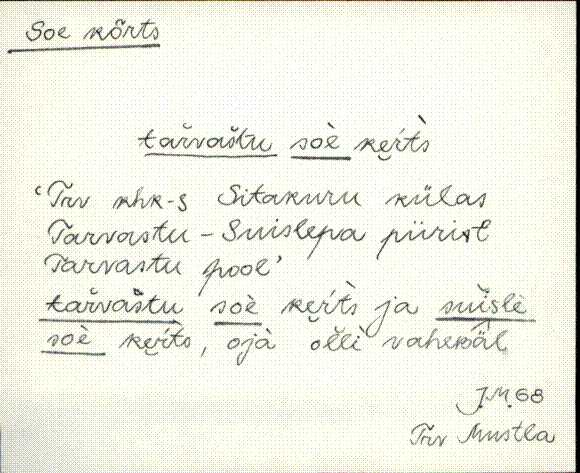 Soe kõrts
tař̌vaštu soè kẹŕtš̀
‘Trv khk-s Sitakuru külas
Tarvastu - Suislepa piirist
Tarvastu pool’
tařvaštu soè kẹŕtš̀ ja sušìslè
soè kẹŕtš, ojà olĺì vahepäl
J.M. 68
Trv Mustla